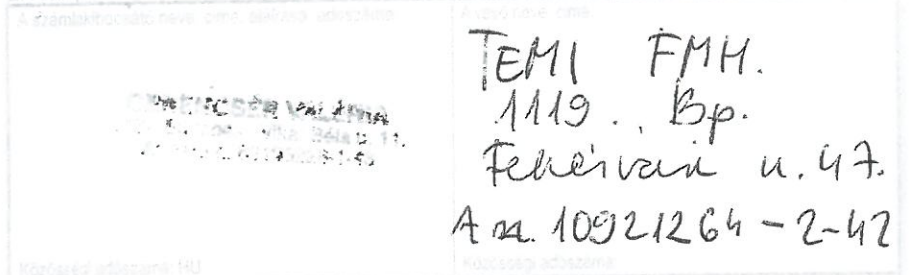 A számlakibocsátó neve, címe, adószáma
VALÉRIA
Béla u. 11.
Közösségi adószáma: HU
A vevő neve, címe
TEMI FMH.
1119. Bp.
Fehérvári u. 47.
A sz. 10921264-2-42
Közösségi adószáma